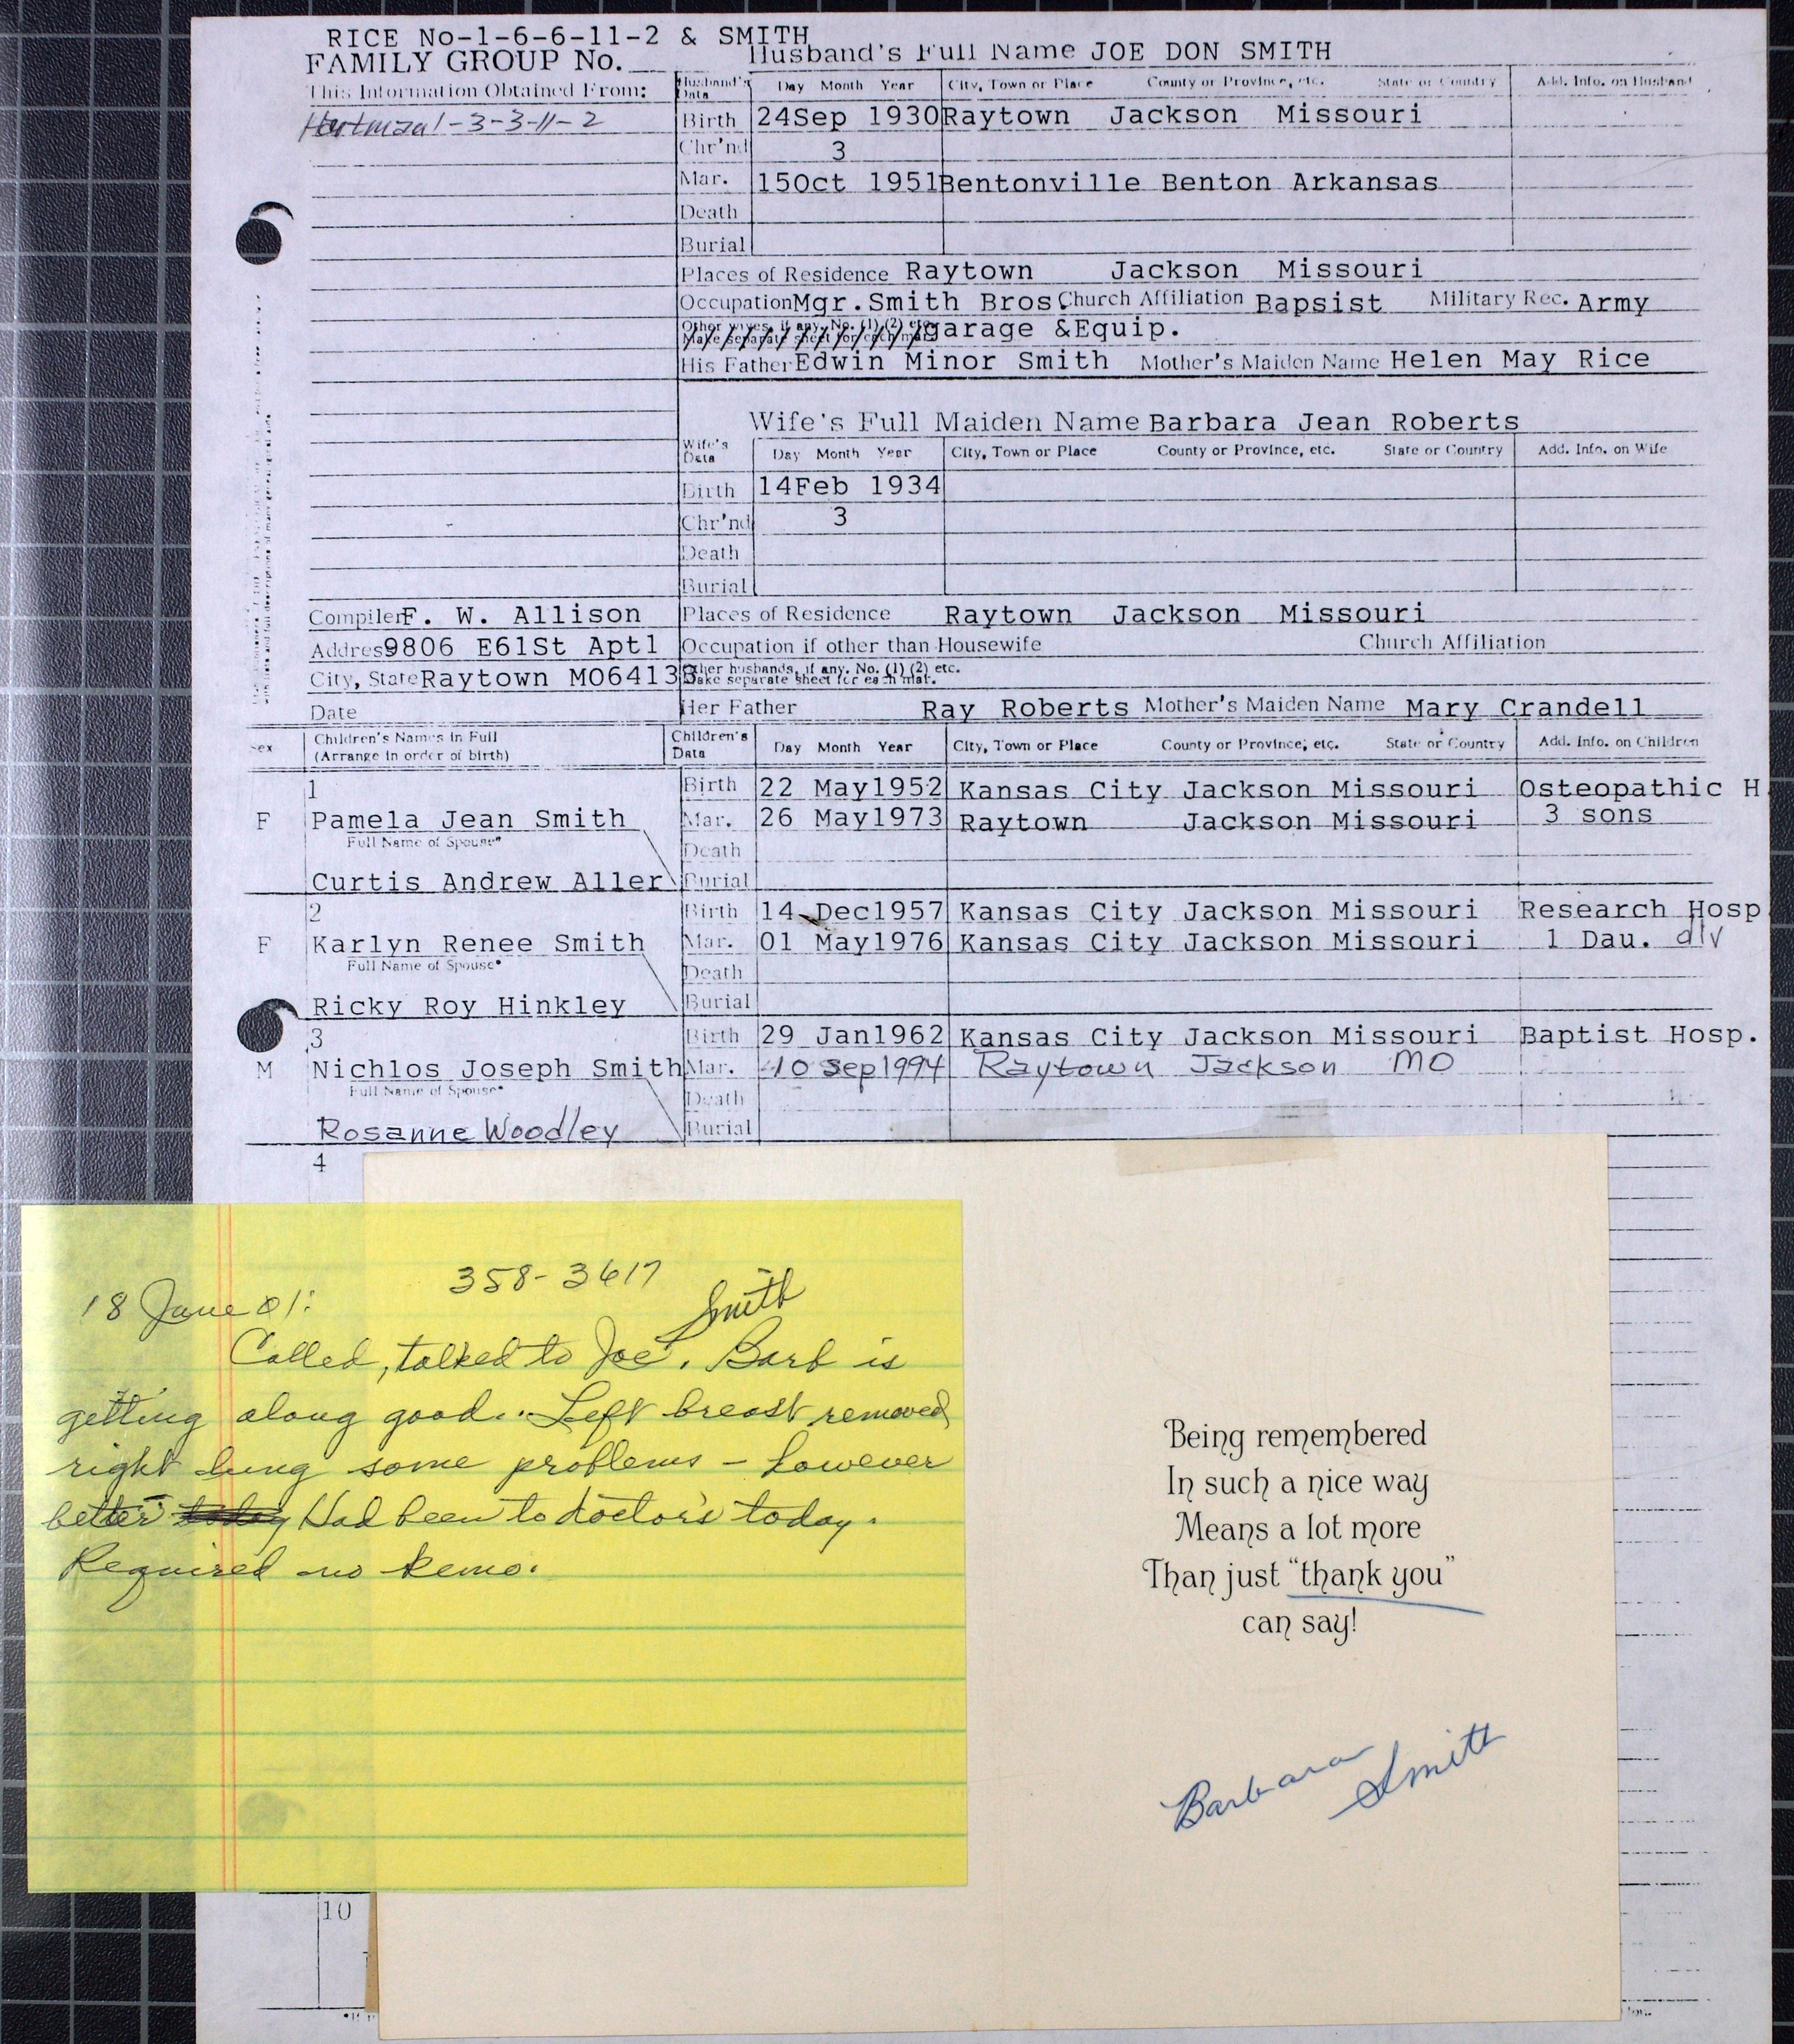 RICE No-1-6-6-11-2 & SMITH
FAMILY GROUP No.
Husband's Full Name JOE DON SMITH
This Information Obtained From:
Hartman 1-3-3-11-2
Husband's Data Day Month Year City, Town or Place County or Province, etc. State or Country Add. Info. on Husband
Birth 24Sep 1930 Raytown Jackson Missouri
Chr'nd 3
Mar. 15Oct 1951 Bentonville Benton Arkansas
Death
Burial
Places of Residence Raytown Jackson Missouri
Occupation Mgr. Smith Bros. Church Affiliation Bapsist Military Rec. Army
Other wives, if any, No. (1) (2) etc.
Make separate sheet for each mar. garage &Equip.
His Father Edwin Minor Smith Mother's Maiden Name Helen May Rice
Wife's Full Maiden Name Barbara Jean Roberts
Wife's Data Day Month Year City, Town or Place County or Province, etc. State or Country Add. Info. on Wife
Birth 14Feb 1934
Chr'nd 3
Death
Burial
Compiler F. W. Allison
Places of Residence Raytown Jackson Missouri
Address 9806 E61St Apt1
Occupation if other than Housewife Church Affiliation
City, State Raytown MO64133
Other husbands, if any, No. (1) (2) etc.
Make separate sheet for each mar.
Date
Her Father Ray Roberts Mother's Maiden Name Mary Crandell
Sex Children's Names in Full
(Arrange in order of birth)
Children's Data Day Month Year City, Town or Place County or Province, etc. State or Country Add. Info. on Children
1
Birth 22 May1952 Kansas City Jackson Missouri Osteopathic H.
F Pamela Jean Smith Mar. 26 May1973 Raytown Jackson Missouri 3 sons
Full Name of Spouse*
Death
Curtis Andrew Aller Burial
2
Birth 14 Dec1957 Kansas City Jackson Missouri Research Hosp
F Karlyn Renee Smith Mar. 01 May1976 Kansas City Jackson Missouri 1 Dau. div
Full Name of Spouse*
Death
Ricky Roy Hinkley Burial
3
Birth 29 Jan1962 Kansas City Jackson Missouri Baptist Hosp.
M Nichlos Joseph Smith Mar. 10 Sep 1994 Raytown Jackson MO
Full Name of Spouse*
Death
Rosanne Woodley Burial
4
358-3617
18 June 01:
Smith
Called, talked to Joe. Barb is
getting along good.. Left breast removed
right lung some problems - however
better today Had been to doctor's today.
Required no kemo.
Being remembered
In such a nice way
Means a lot more
Than just "thank you"
can say!
Barbara Smith
10